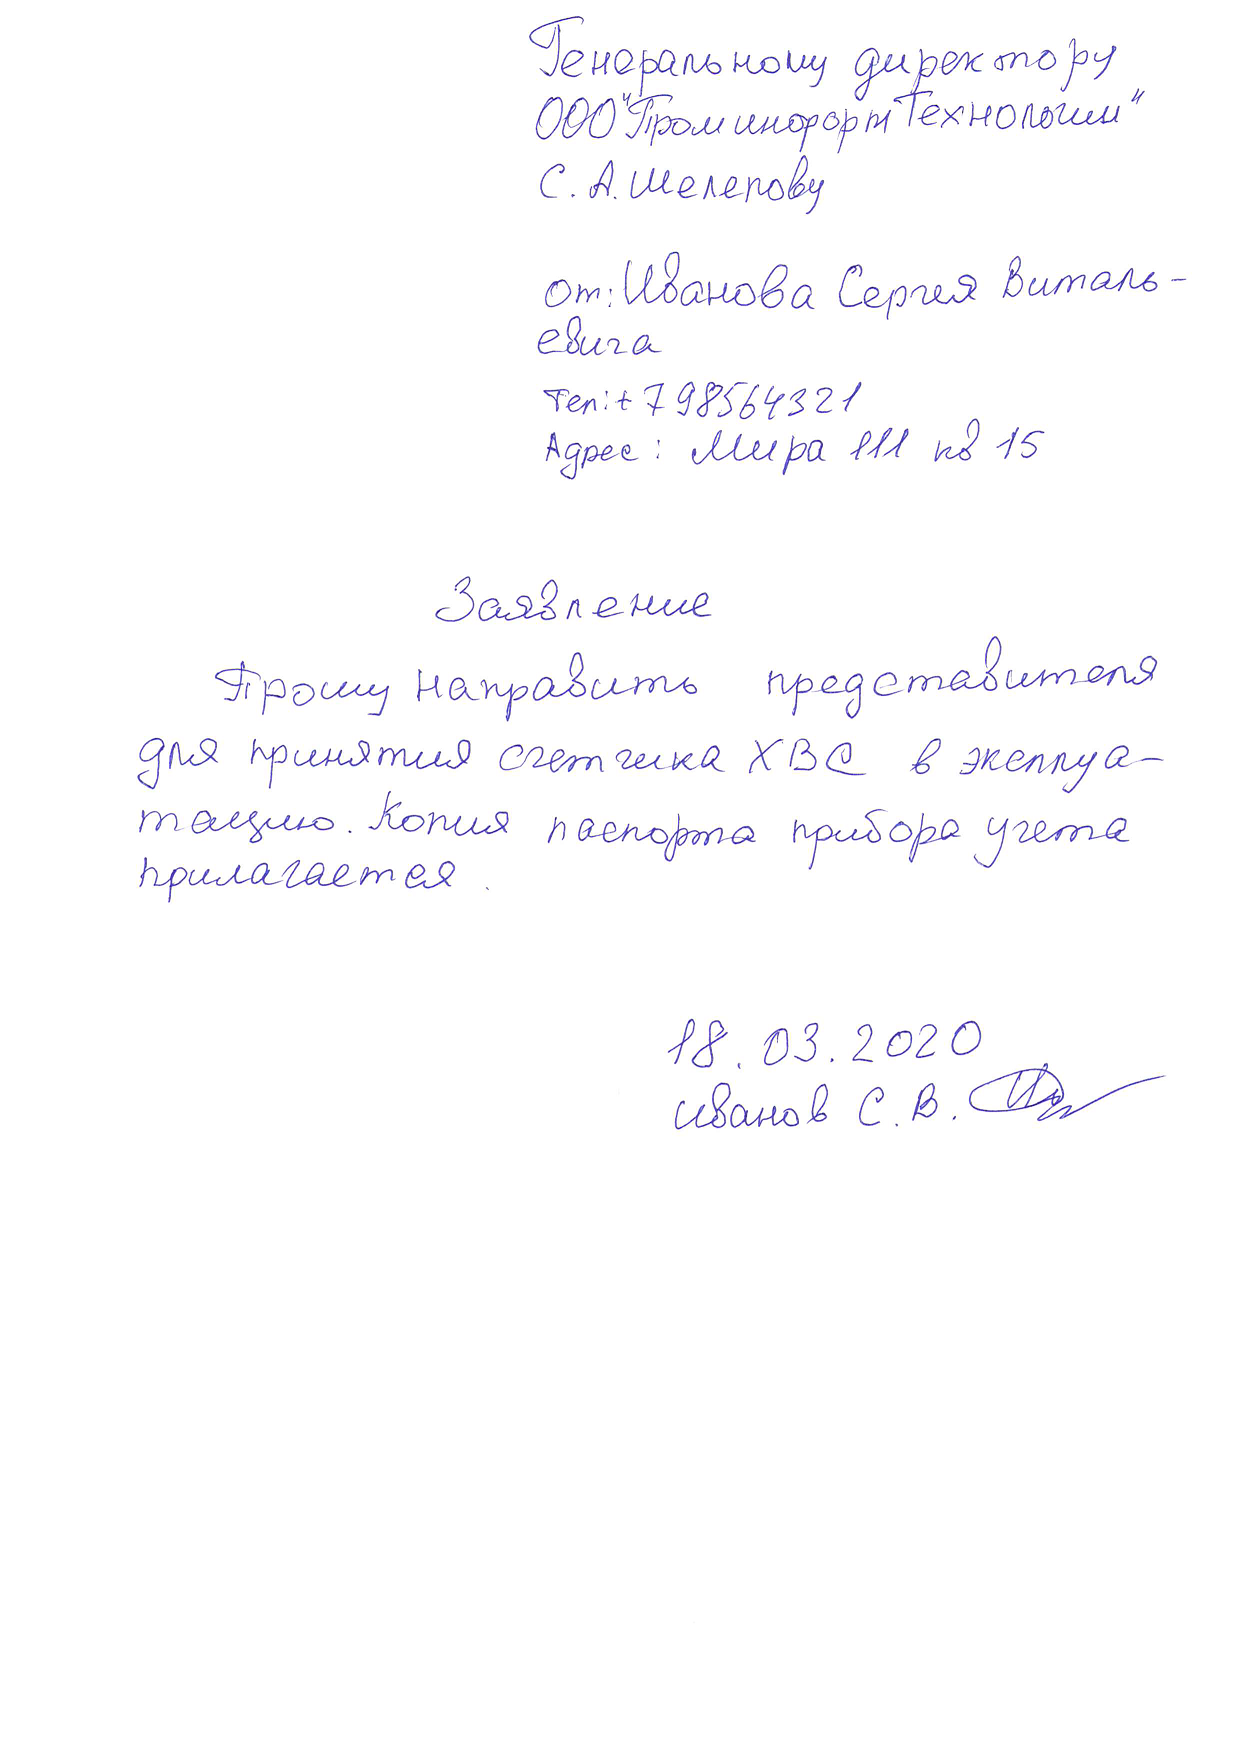 Генеральному директору
ООО "ПроминфортТехнологии"
С. А. Шелепову
от: Иванова Сергея Виталь-
евича
Тел: +798564321
Адрес: Мира 111 кв 15
Заявление
Прошу направить представителя
для принятия счетчика ХВС в эксплуа-
тацию. Копия паспорта прибора учета
прилагается.
18.03.2020
Иванов С. В.